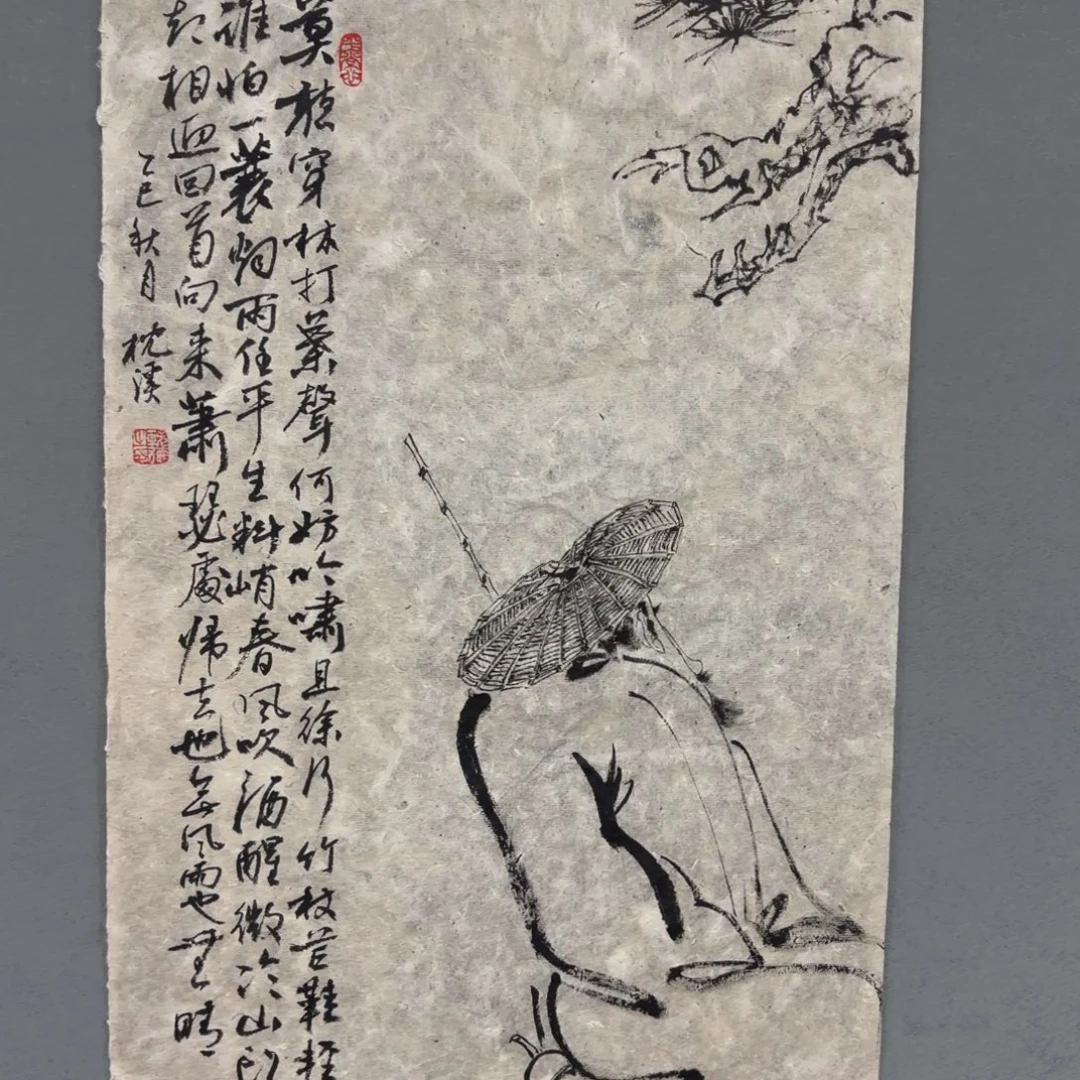 莫聽穿林打葉聲何妨吟嘯且徐行竹杖芒鞋輕
誰怕一蓑烟雨任平生料峭春風吹酒醒微冷山
相迎回首向來蕭瑟處歸去也無風雨也無晴
乙巳秋月 枕溪